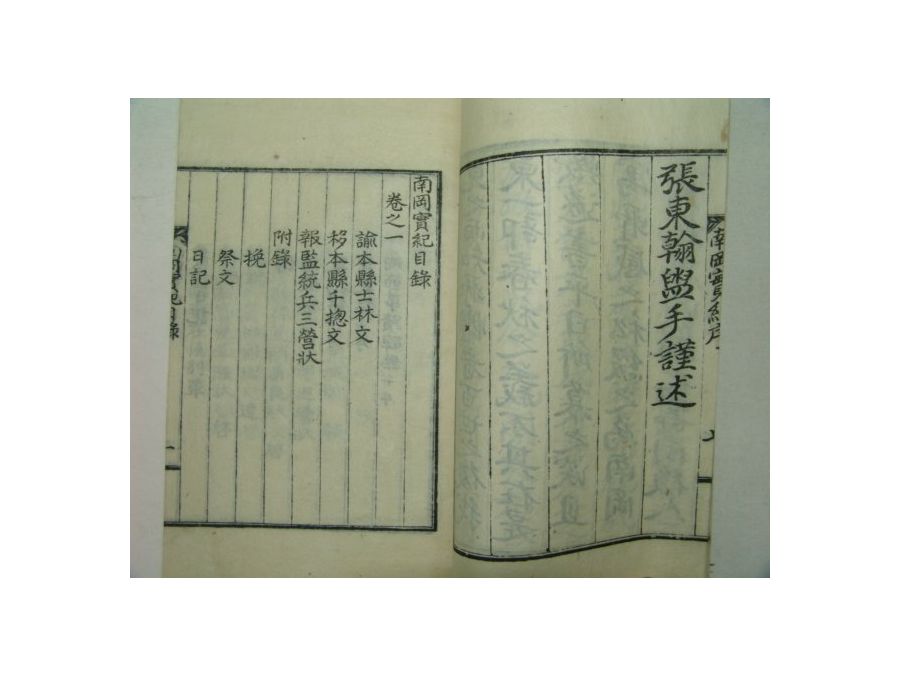 張東翰盥手謹述
南岡實紀序
南岡實紀目錄
卷之一
諭本縣士林文
移本縣千摠文
報監統兵三營狀
附錄
挽
祭文
日記
南岡實紀目錄
一